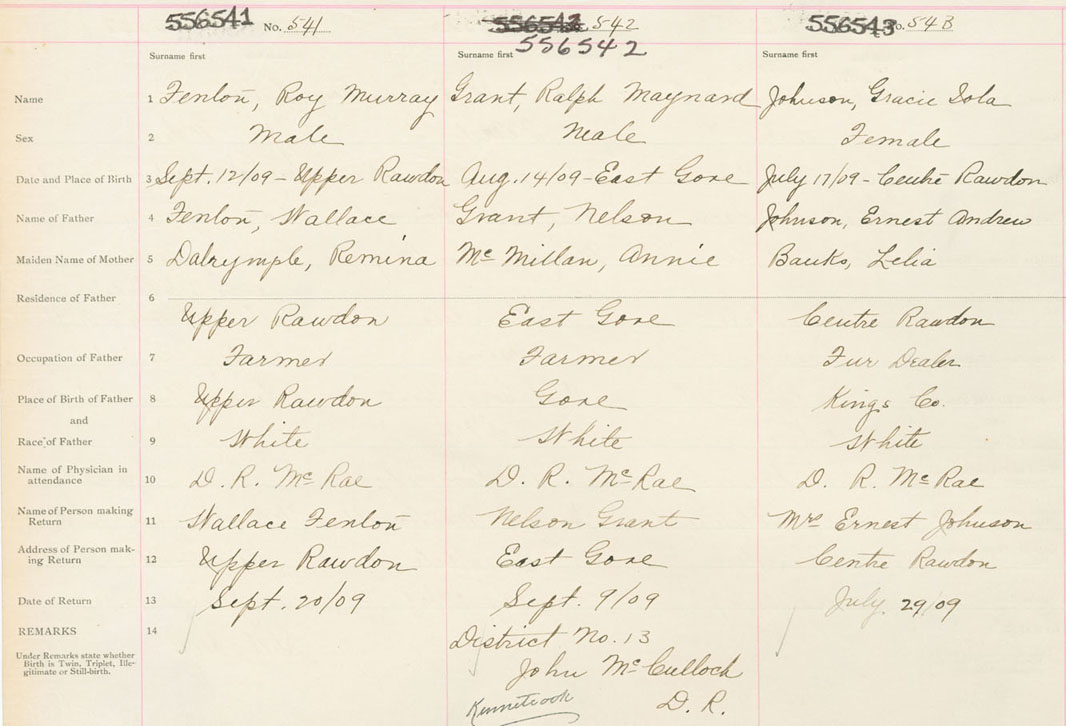 556541 No. 541 556542 542 556543 No. 543
556542
Surname first Surname first Surname first
Name 1 Fenton, Roy Murray Grant, Ralph Maynard Johnson, Gracie Iola
Sex 2 Male Male Female
Date and Place of Birth 3 Sept. 12/09 - Upper Rawdon Aug. 14/09 - East Gore July 17/09 - Centre Rawdon
Name of Father 4 Fenton, Wallace Grant, Nelson Johnson, Ernest Andrew
Maiden Name of Mother 5 Dalrymple, Remina McMillan, Annie Banks, Lelia
Residence of Father 6
Upper Rawdon East Gore Centre Rawdon
Occupation of Father 7 Farmer Farmer Fur Dealer
Place of Birth of Father 8 Upper Rawdon Gore Kings Co.
and
Race of Father 9 White White White
Name of Physician in
attendance 10 D. R. McRae D. R. McRae D. R. McRae
Name of Person making
Return 11 Wallace Fenton Nelson Grant Mrs Ernest Johnson
Address of Person mak-
ing Return 12 Upper Rawdon East Gore Centre Rawdon
Date of Return 13 Sept. 20/09 Sept. 9/09 July 29/09
REMARKS 14 District No. 13
Under Remarks state whether
Birth is Twin, Triplet, Ille-
gitimate or Still-birth.
John McCulloch
Kennetcook D. R.